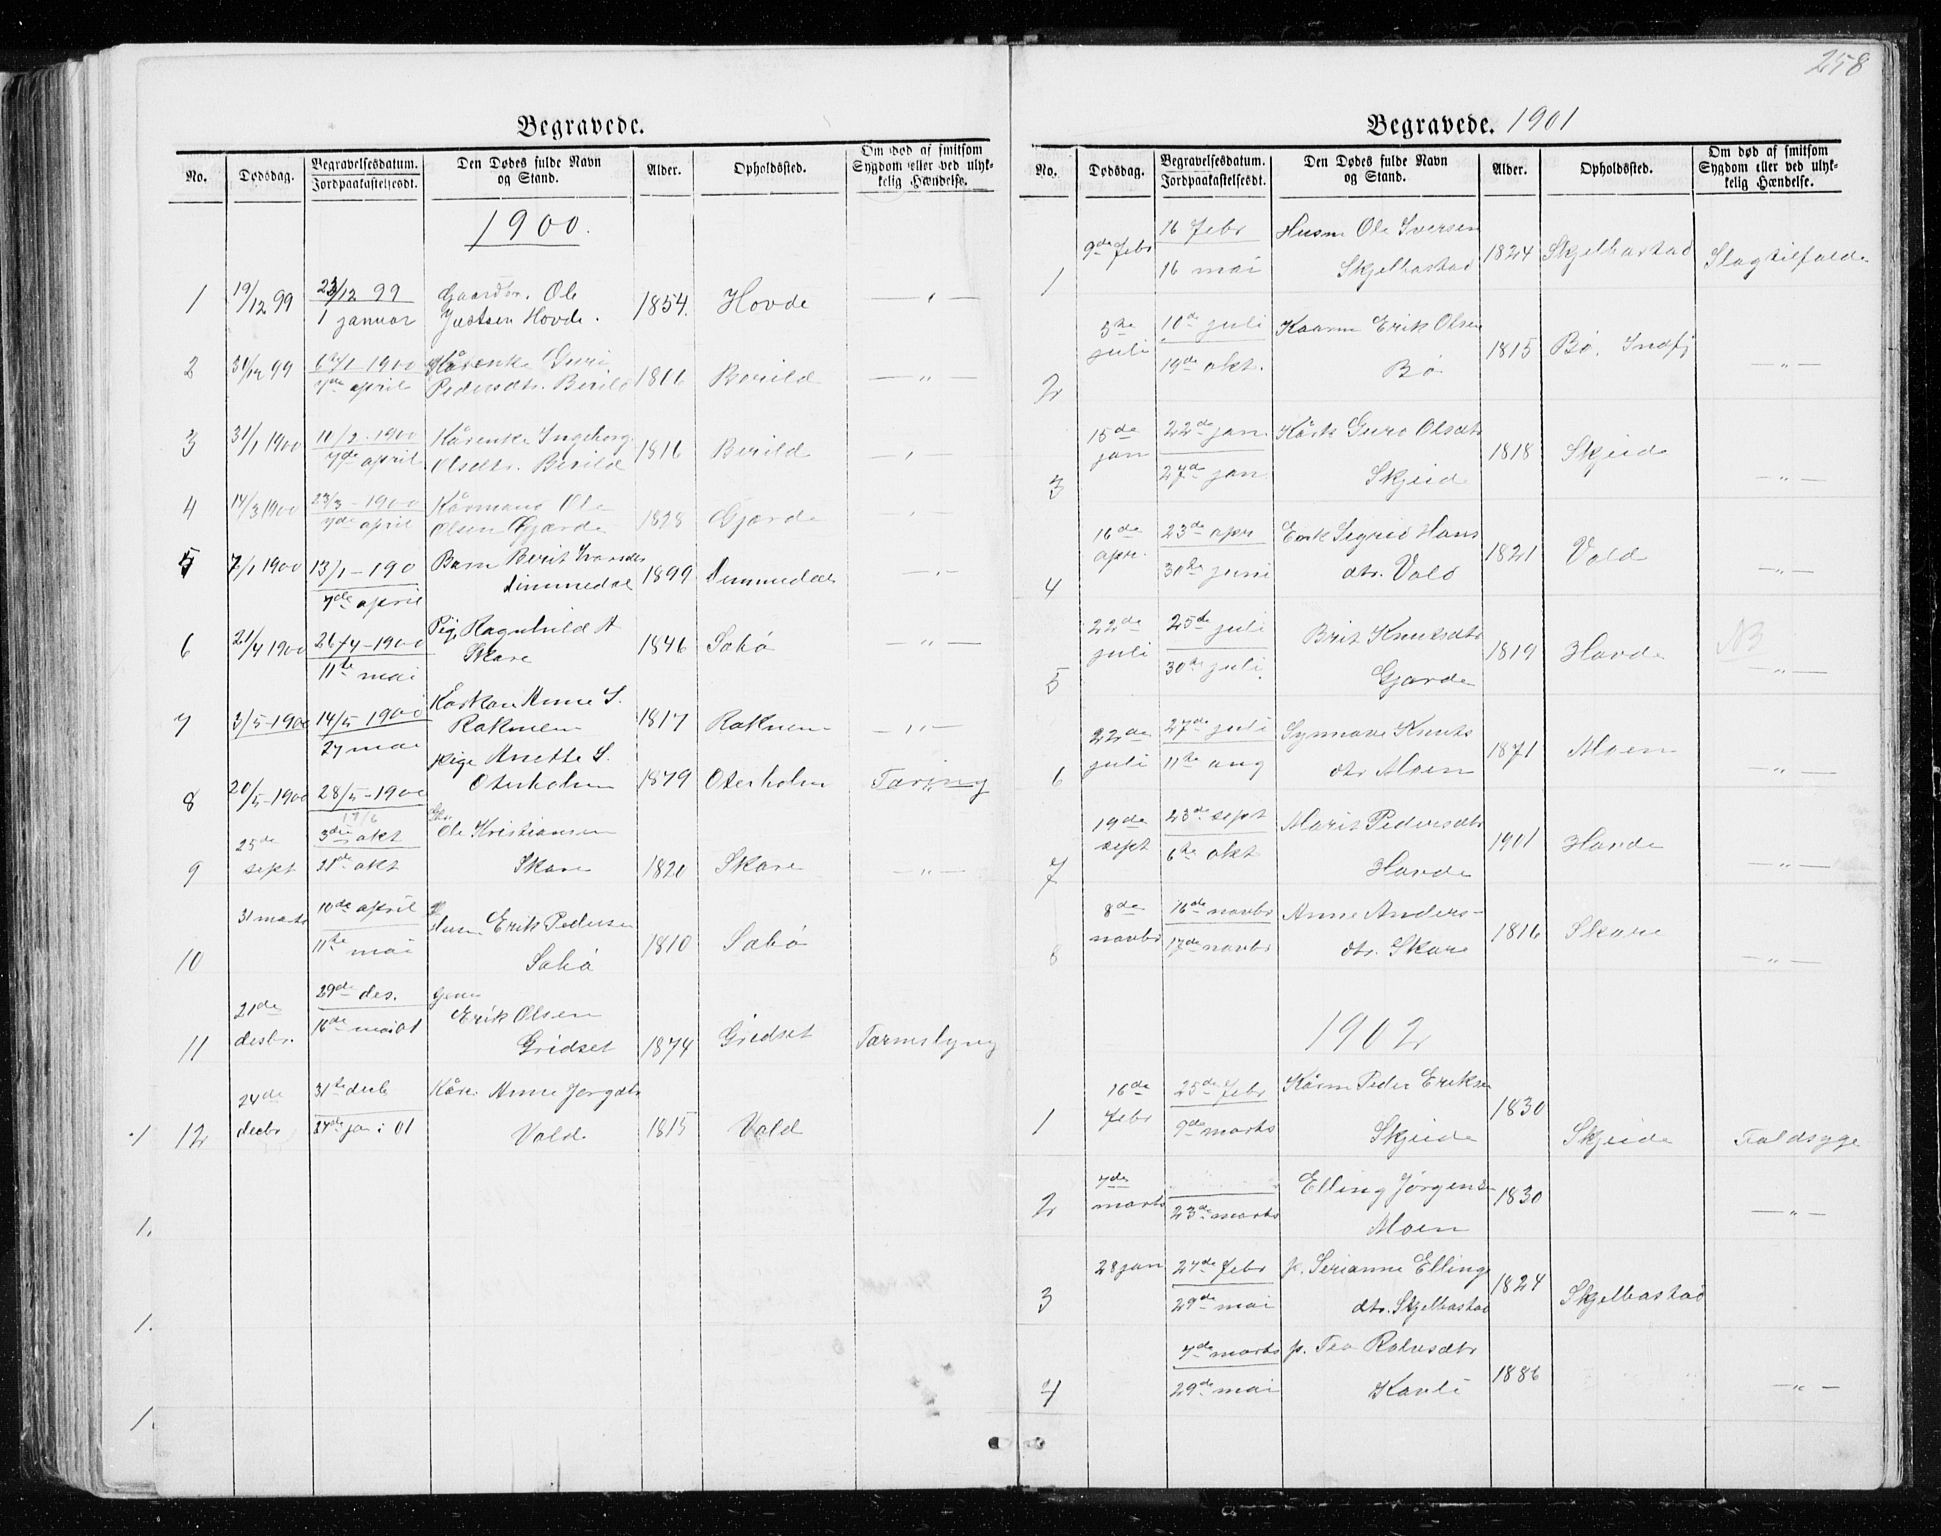 258
Begravede.
No. Dødsdag. Begravelsesdatum. Jordpaakastelsesdt. Den Dødes fulde Navn og Stand. Alder. Opholdssted. Om død af smitsom Sygdom eller ved ulykkelig Hændelse.
1900.
1 19/12 99 23/12 99 Gaardbr. Ole 1854. Hovde — " —
1 januar Justsen Hovde.
2 31/12 99 6te/1 - 1900 Kårenke Guri 1816 Berild — " —
7de april Pedersdtr. Berild
3 31/1 1900 10/2 - 1900 Kårenke Ingeborg 1816 Berild — " —
7de april Olsdtr. Berild
4 14/3 1900 23/3 - 1900 Kårmand Ole 1828 Gjærde — " —
7de april Olsen Gjærde
5 7/1 1900 13/1 - 190 Barn Berit Iversdtr 1899 — " —
7de april
6 21/4 1900 26/4 - 1900 Pig. Ragnhild A 1846 Sæbø — " —
11te mai Skare
7 3/5 - 1900 14/5 1900 Anne S. 1817 Raknem — " —
27 mai Raknem
8 20/5 - 1900 28/5 - 1900 Pige Anette S. 1879 Oterholm Tæring
17/6 Oterholm
9 25de sept 3die okt Ole Kristiansen 1820 Skare — " —
21de okt Skare
10 31 marts 10de april Husm Erik Pedersen 1810 Sæbø
11te mai Sæbø
11 21de desbr. 29de des. Erik Olsen 1874 Gridset Tarmslyng
16de mai 01 Gridset
12 24de desbr 31te desb Kåre. Anne Jørgdtr 1815 Vold
jan: 01 Vold
Begravede. 1901
No. Dødsdag. Begravelsesdatum. Jordpaakastelsesdt. Den Dødes fulde Navn og Stand. Alder. Opholdssted. Om død af smitsom Sygdom eller ved ulykkelig Hændelse.
1 9de febr 16 febr Husm Ole Iversen 1824 Skjelbostad Slagtilfælde
16 mai Skjelbostad
2 5te juli 10de juli Kaarm Erik Olsen 1815 Bø. Indfj — " —
19de okt. Bø
3 15de jan 22de jan Kårk Guro Olsdtr 1818 Skjeide — " —
27de jan Skjeid
4 16de apr. 23de apr Enk Sigrid Hans 1821 Vold — " —
30te juni dtr. Vold
5 22de juli 25de juli Brit Knutsdtr 1819 Hovde NB — " —
30de juli. Gjærde
6 22de juli 27de juli Synnøve Knuts 1871 Moen — " —
11te aug dtr Moen
7 19de sept 23de sept Marit Pedersdtr 1901 Hovde — " —
6te okt Hovde
8 8de novbr 16de novbr Anne Anders- 1816 Skare — " —
17de novbr dtr. Skare
1902
1 16de febr 25de febr Kårm Peder Eriksen 1830 Skjeide Faldsyge
9de marts Skjeide
2 7de marts Elling Jørgensen 1830 — " —
23de marts Moen
3 28 jan 27de febr p. Serianne Ellings 1824 Skjelbostad
29de mai dtr. Skjelbostad
4 7de marts p. Tea Rolvsdtr 1886 — " —
29de mai Kavli